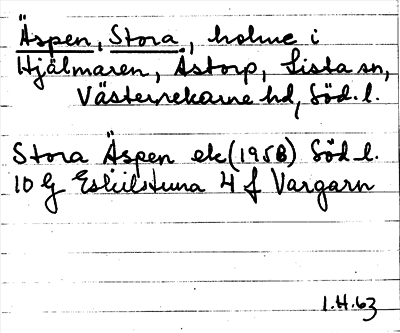 Äspen, Stora, holme i
Hjälmaren, Åstorp, Lista sn,
Västerrekarne hd, Söd. l.
Stora Äspen ek (1958) Söd l.
10 G Eskilstuna 4 f Vargarn
1.H.63